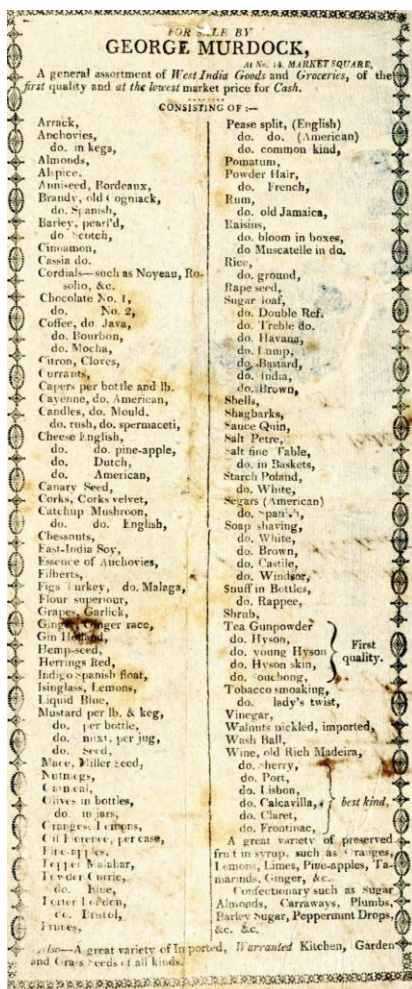 FOR SALE BY
GEORGE MURDOCK,
At No. 14, MARKET SQUARE,
A general assortment of West India Goods and Groceries, of the
first quality and at the lowest market price for Cash.
CONSISTING OF :—
Arrack,
Anchovies,
do. in kegs,
Almonds,
Alspice,
Anniseed, Bordeaux,
Brandy, old Cogniack,
do. Spanish,
Barley, pearl'd,
do Scotch,
Cinnamon,
Cassia do.
Cordials—such as Noyeau, Ro-
solio, &c.
Chocolate No. 1,
do. No. 2,
Coffee, do Java,
do. Bourbon,
do. Mocha,
Citron, Cloves,
Currants,
Capers per bottle and lb.
Cayenne, do. American,
Candles, do. Mould.
do. rush, do. spermaceti,
Cheese English,
do. do. pine-apple,
do. Dutch,
do. American,
Canary Seed,
Corks, Corks velvet,
Catchup Mushroon,
do. do. English,
Chessnuts,
East-India Soy,
Essence of Anchovies,
Filberts,
Figs Turkey, do. Malaga,
Flour superiour,
Grapes, Garlick,
Ginger, Ginger race,
Gin Holland,
Hemp-seed,
Herrings Red,
Indigo Spanish float,
Isinglass, Lemons,
Liquid Blue,
Mustard per lb. & keg,
do. per bottle,
do. mixt, per jug,
do. Seed,
Mace, Miller Seed,
Nutmegs,
Oatmeal,
Olives in bottles,
do. in jars,
Oranges, Lemons,
Oil Florence, per case,
Pine-apples,
Pepper Malabar,
Powder Currie,
do. Blue,
Porter London,
do. Bristol,
Prunes,
Pease split, (English)
do. do. (American)
do. common kind,
Pomatum,
Powder Hair,
do. French,
Rum,
do. old Jamaica,
Raisins,
do. bloom in boxes,
do Muscatelle in do.
Rice,
do. ground,
Rape seed,
Sugar loaf,
do. Double Ref.
do. Treble do.
do. Havana,
do. Lump,
do. Bastard,
do. India,
do. Brown,
Shells,
Shagbarks,
Sauce Quin,
Salt Petre,
Salt fine Table,
do. in Baskets,
Starch Poland,
do. White,
Segars (American)
do. Spanish,
Soap shaving,
do. White,
do. Brown,
do. Castile,
do. Windsor,
Snuff in Bottles,
do. Rappee,
Shrub,
Tea Gunpowder
do. Hyson,
do. young Hyson
do. Hyson skin,
do. Souchong,
First
quality.
Tobacco smoaking,
do. lady's twist,
Vinegar,
Walnuts pickled, imported,
Wash Ball,
Wine, old Rich Madeira,
do. Sherry,
do. Port,
do. Lisbon,
do. Calcavilla,
do. Claret,
do. Frontinac,
best kind,
A great variety of preserved
fruit in syrup, such as Oranges,
Lemons, Limes, Pine-apples, Ta-
marinds, Ginger, &c.
Confectionary such as Sugar
Almonds, Carraways, Plumbs,
Barley Sugar, Peppermint Drops,
&c. &c.
Also—A great variety of Imported, Warranted Kitchen, Garden
and Grass Seeds of all kinds.